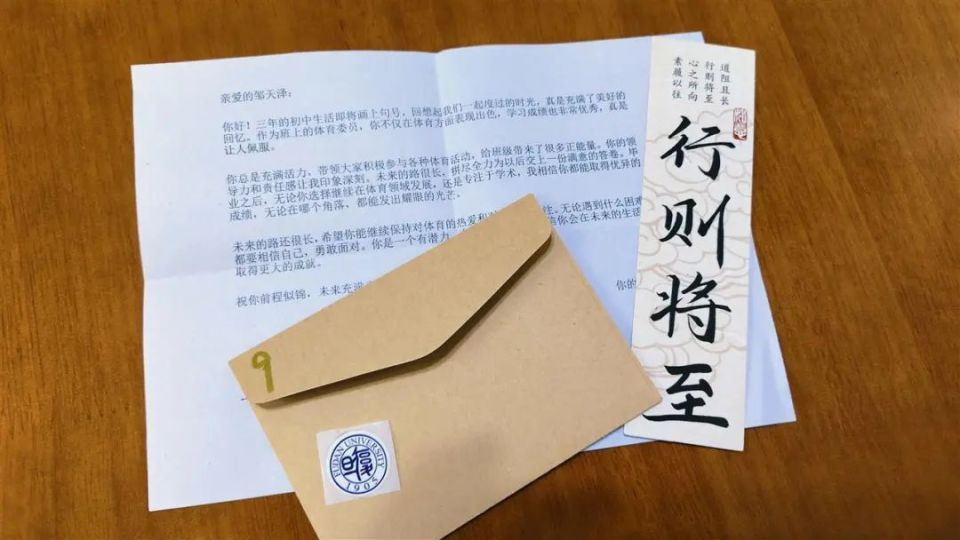 亲爱的邹天泽：
你好！三年的初中生活即将画上句号，回想起我们一起度过的时光，真是充满了美好的
回忆。作为班上的体育委员，你不仅在体育方面表现出色，学习成绩也非常优秀，真是
让人佩服。
你总是充满活力，带领大家积极参与各种体育活动，给班级带来了很多正能量。你的领
导力和责任感让我印象深刻。未来的路很长，拼尽全力为以后交上一份满意的答卷。毕
业之后，无论你选择继续在体育领域发展，还是专注于学术，我相信你都能取得优异的
成绩，无论在哪个角落，都能发出耀眼的光芒。
未来的路还很长，希望你能继续保持对体育的热爱和 无论遇到什么困难
都要相信自己，勇敢面对。你是一个有潜力 你会在未来的生活
取得更大的成就。
祝你前程似锦，未来充满
你的
道阻且长
行则将至
心之所向
素履以往
行则将至
9
FUDAN UNIVERSITY
1905